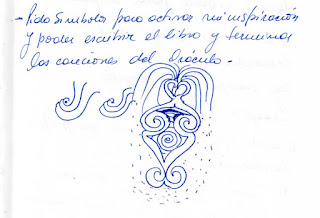 - Pido Símbolos para activar mi inspiración
y poder escribir el libro y terminar
las canciones del Oráculo.-